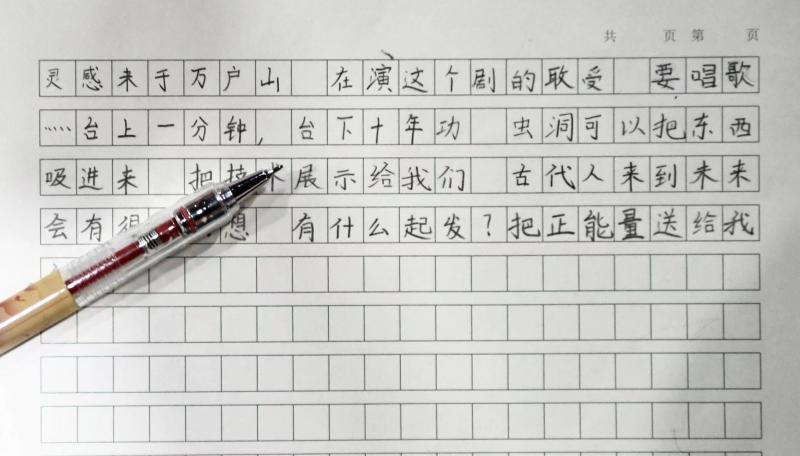 共 页 第 页
灵感来于万户山 在演这个剧的敢受 要唱歌
……台上一分钟，台下十年功 虫洞可以把东西
吸进来 把技术展示给我们 古代人来到未来
会有很 想 有什么起发？把正能量送给我